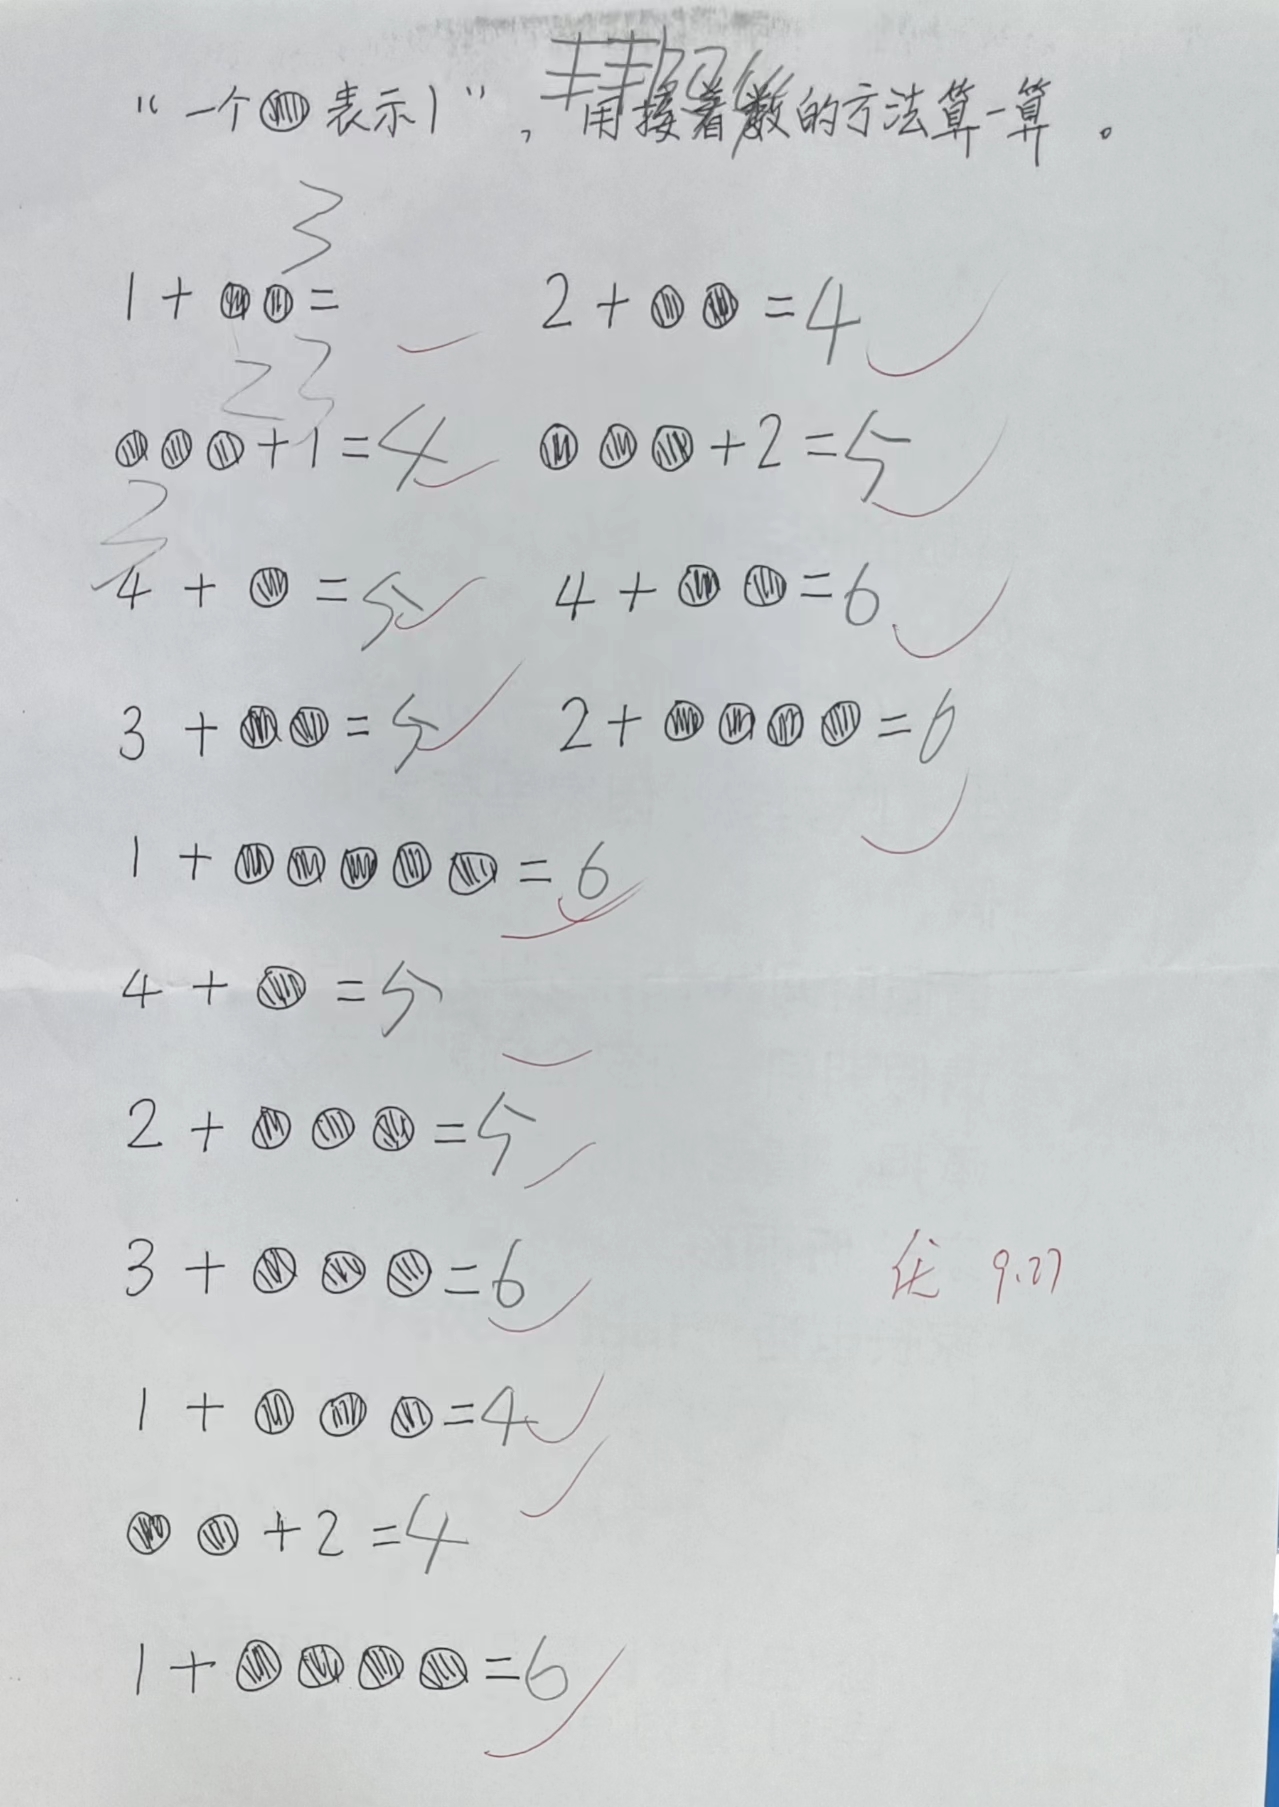 “一个●表示1”，用接着数的方法算一算。
3
1+●●= 2+●●=4
2 3
●●●+1=4 ●●●+2=5
2
4+●=5 4+●●=6
3+●●=5 2+●●●●=6
1+●●●●●=6
4+●=5
2+●●●=5
3+●●●=6
优 9.27
1+●●●=4
●●+2=4
1+●●●●=6